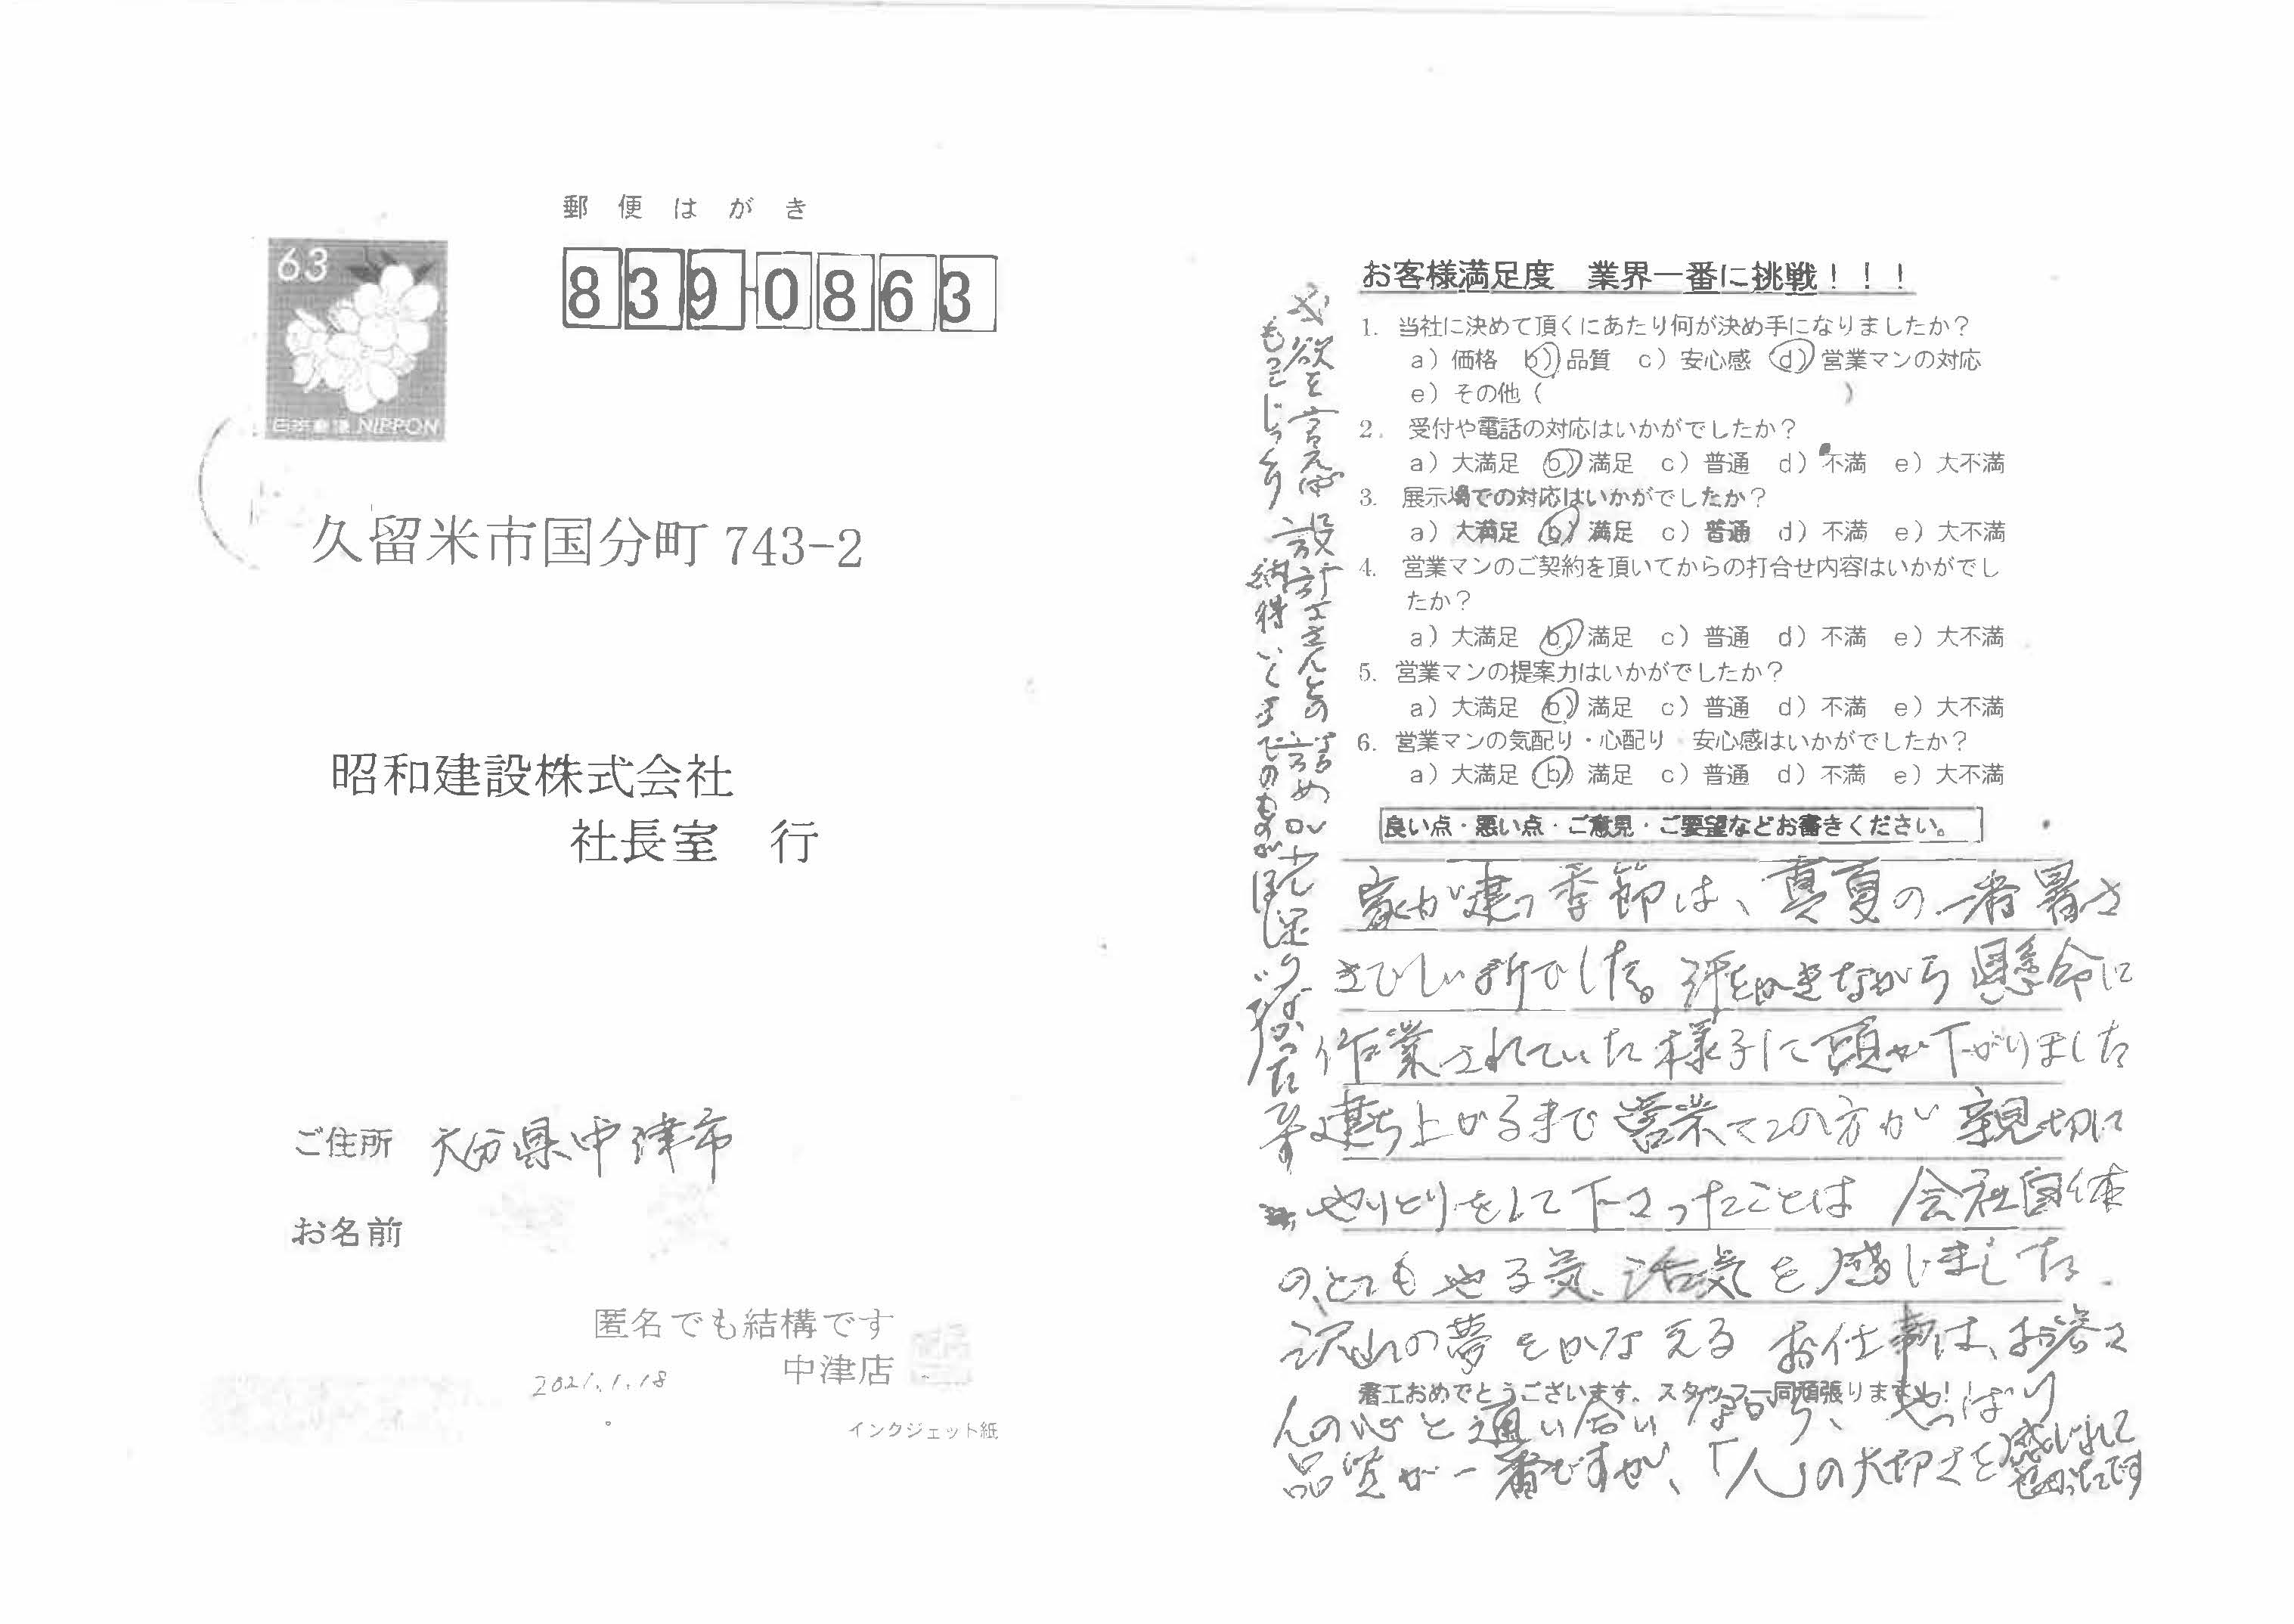 郵便はがき
63
日本郵便 NIPPON
839-0863
久留米市国分町 743-2
昭和建設株式会社
社長室 行
ご住所 大分県中津市
お名前
匿名でも結構です
中津店
2021.1.18
インクジェット紙
お客様満足度 業界一番に挑戦!!!
1. 当社に決めて頂くにあたり何が決め手になりましたか?
a) 価格 b) 品質 c) 安心感 d) 営業マンの対応
e) その他 ( )
2. 受付や電話の対応はいかがでしたか?
a) 大満足 b) 満足 c) 普通 d) 不満 e) 大不満
3. 展示場での対応はいかがでしたか?
a) 大満足 b) 満足 c) 普通 d) 不満 e) 大不満
4. 営業マンのご契約を頂いてからの打合せ内容はいかがでし
たか?
a) 大満足 b) 満足 c) 普通 d) 不満 e) 大不満
5. 営業マンの提案力はいかがでしたか?
a) 大満足 b) 満足 c) 普通 d) 不満 e) 大不満
6. 営業マンの気配り・心配り・安心感はいかがでしたか?
a) 大満足 b) 満足 c) 普通 d) 不満 e) 大不満
良い点・悪い点・ご意見・ご要望などお書きください。
家が建つ季節は、真夏の一番暑さ
きびしい折でした。汗をかきながら懸命に
作業されていた様子に頭が下がりました
建ち上がるまで営業マンの方が親切に
やりとりをして下さったことは 会社自体
の、とてもやる気、活気を感じました.
沢山の夢をかなえるお仕事は、お客さ
着工おめでとうございます。スタッフ一同頑張ります!!
人の心と通い合いながら、やっぱり
品質が一番ですが、「人」の大切さを感じれて
よかったです
欲を言えば 設計士さんとの詰めが少し足りなかった
もっとじっくり 納得いくまでのものがほし